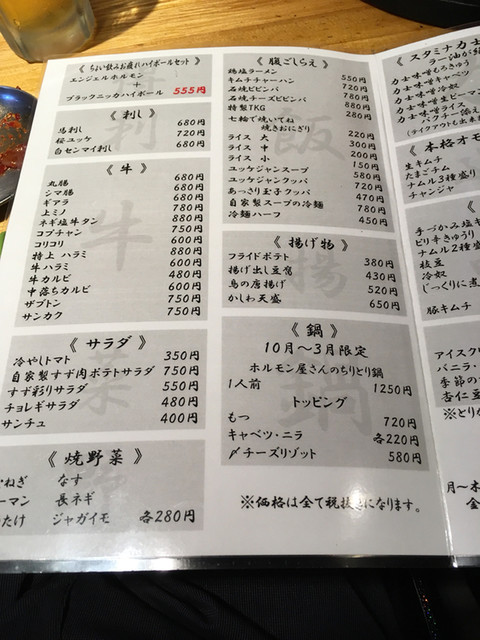 《ちょい飲みお疲れハイボールセット》
エンジェルホルモン
+
ブラックニッカハイボール 555円
《刺し》
馬刺し 680円
桜ユッケ 720円
白センマイ刺し 680円
《牛》
丸腸 680円
シマ腸 680円
ギアラ 680円
上ミノ 780円
ネギ塩牛タン 880円
コプチャン 750円
コリコリ 600円
特上ハラミ 880円
牛ハラミ 600円
牛カルビ 480円
中落ちカルビ 600円
ザブトン 750円
サンカク 750円
《サラダ》
冷やしトマト 350円
自家製すず肉ポテトサラダ 750円
すず彩りサラダ 550円
チョレギサラダ 480円
サンチュ 400円
《焼野菜》
ねぎ なす
ーマン 長ネギ
たけ ジャガイモ 各280円
《腹ごしらえ》
鶏塩ラーメン 550円
キムチチャーハン
石焼ビビンバ
石焼チーズビビンバ
特製TKG 280円
七輪で焼いてね
焼きおにぎり 220円
ライス 大
ライス 中 300円
ライス 小 200円
ユッケジャンスープ 150円
ユッケジャンクッパ 580円
あっさり玉子クッパ 720円
自家製スープの冷麺 470円
冷麺ハーフ 780円
450円
《揚げ物》
フライドポテト 380円
揚げ出し豆腐 430円
鳥の唐揚げ 520円
かしわ天盛 650円
《鍋》
10月〜3月限定
ホルモン屋さんのちりとり鍋
1人前 1250円
トッピング
もつ 720円
キャベツ・ニラ 各220円
〆チーズリゾット 580円
※価格は全て税抜きになります。
スタミナ力士
ラー油が
力士味噌もろきゅう
力士味噌キャベツ
力士味噌冷奴
力士味噌生ピーマン
力士味噌ライス
パクチー添え
(テイクアウトも出来ま
《本格オモ
生キムチ
たまごキムチ
ナムル3種盛り
チャンジャ
《
手づかみ塩キ
ピリ辛きゅうり
ナムル2種
枝豆
冷奴
じっくりに煮
豚キムチ
アイスクリ
バニラ・
季節の
杏仁豆
※とりか
月〜木
金